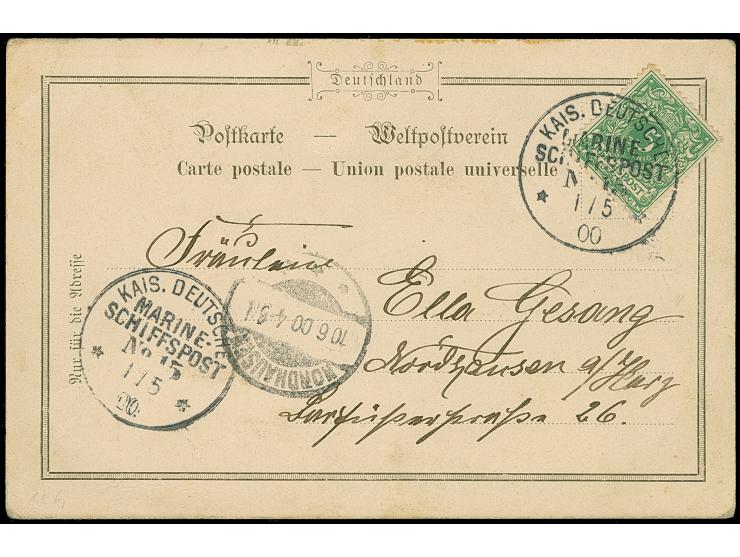 Deutschland
Postkarte — Weltpostverein
Carte postale — Union postale universelle
KAIS. DEUTSCHE
MARINE-
SCHIFFSPOST
No 15
1/5
00
Nur für die Adresse
Fräulein
Ella Gesang
Nordhausen a/Harz
Barfüßerstraße 26.
KAIS. DEUTSCHE
MARINE-
SCHIFFSPOST
No 15
1/5
00
NORDHAUSEN
10.6.00.4-5N